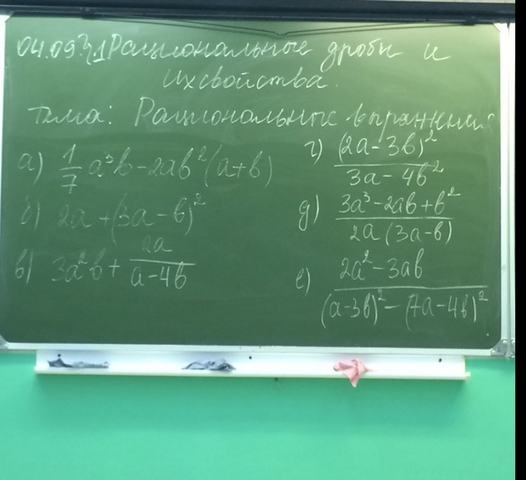 04.09 §1 Рациональные дроби и
их свойства.
тема: Рациональных выражений
а) 1/7 a³b - 2ab²(a+b)
б) 2a + (3a - b)²
в) 3a²b + 2a/(a - 4b)
г) (2a - 3b)²/(3a - 4b²)
д) (3a³ - 2ab + b²)/(2a(3a - b))
е) (2a² - 3ab)/((a - 3b)² - (7a - 4b)²)